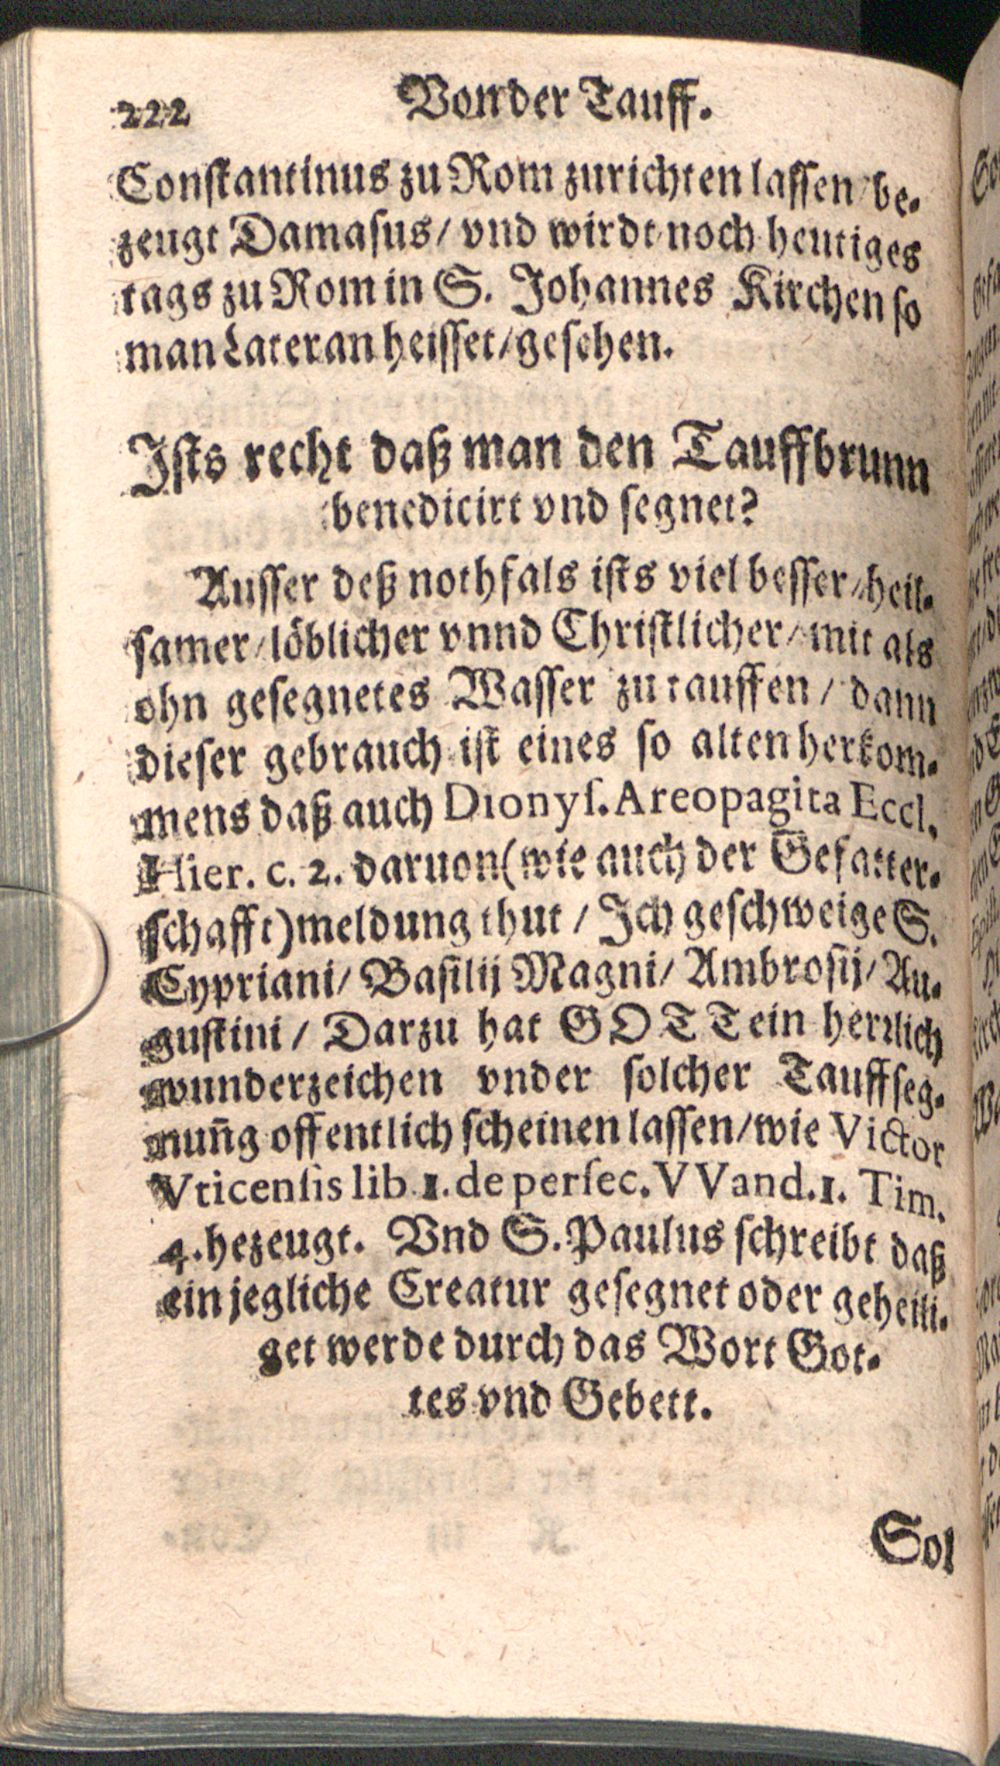 222 Von der Tauff.
Constantinus zu Rom zurichten lassen / be-
zeugt Damasus / vnd wirdt noch heutiges
tags zu Rom in S. Johannes Kirchen so
man Lateran heisset / gesehen.
Ists recht daß man den Tauffbrunn
benedicirt vnd segnet?
Ausser deß nothfals ists viel besser / heil-
samer / löblicher vnnd Christlicher / mit als
ohn gesegnetes Wasser zu tauffen / dann
dieser gebrauch ist eines so alten herkom-
mens daß auch Dionys. Areopagita Eccl.
Hier. c. 2. daruon (wie auch der Gefatter-
schafft) meldung thut / Ich geschweige S.
Cypriani / Basilij Magni / Ambrosij / Au-
gustini / Darzu hat GOTT ein herrlich
wunderzeichen vnder solcher Tauffseg-
nun̄g offentlich scheinen lassen / wie Victor
Vticensis lib. 1. de persec. VVand. 1. Tim.
4. bezeugt. Vnd S. Paulus schreibt daß
ein jegliche Creatur gesegnet oder geheili-
get werde durch das Wort Got-
tes vnd Gebett.
Sol